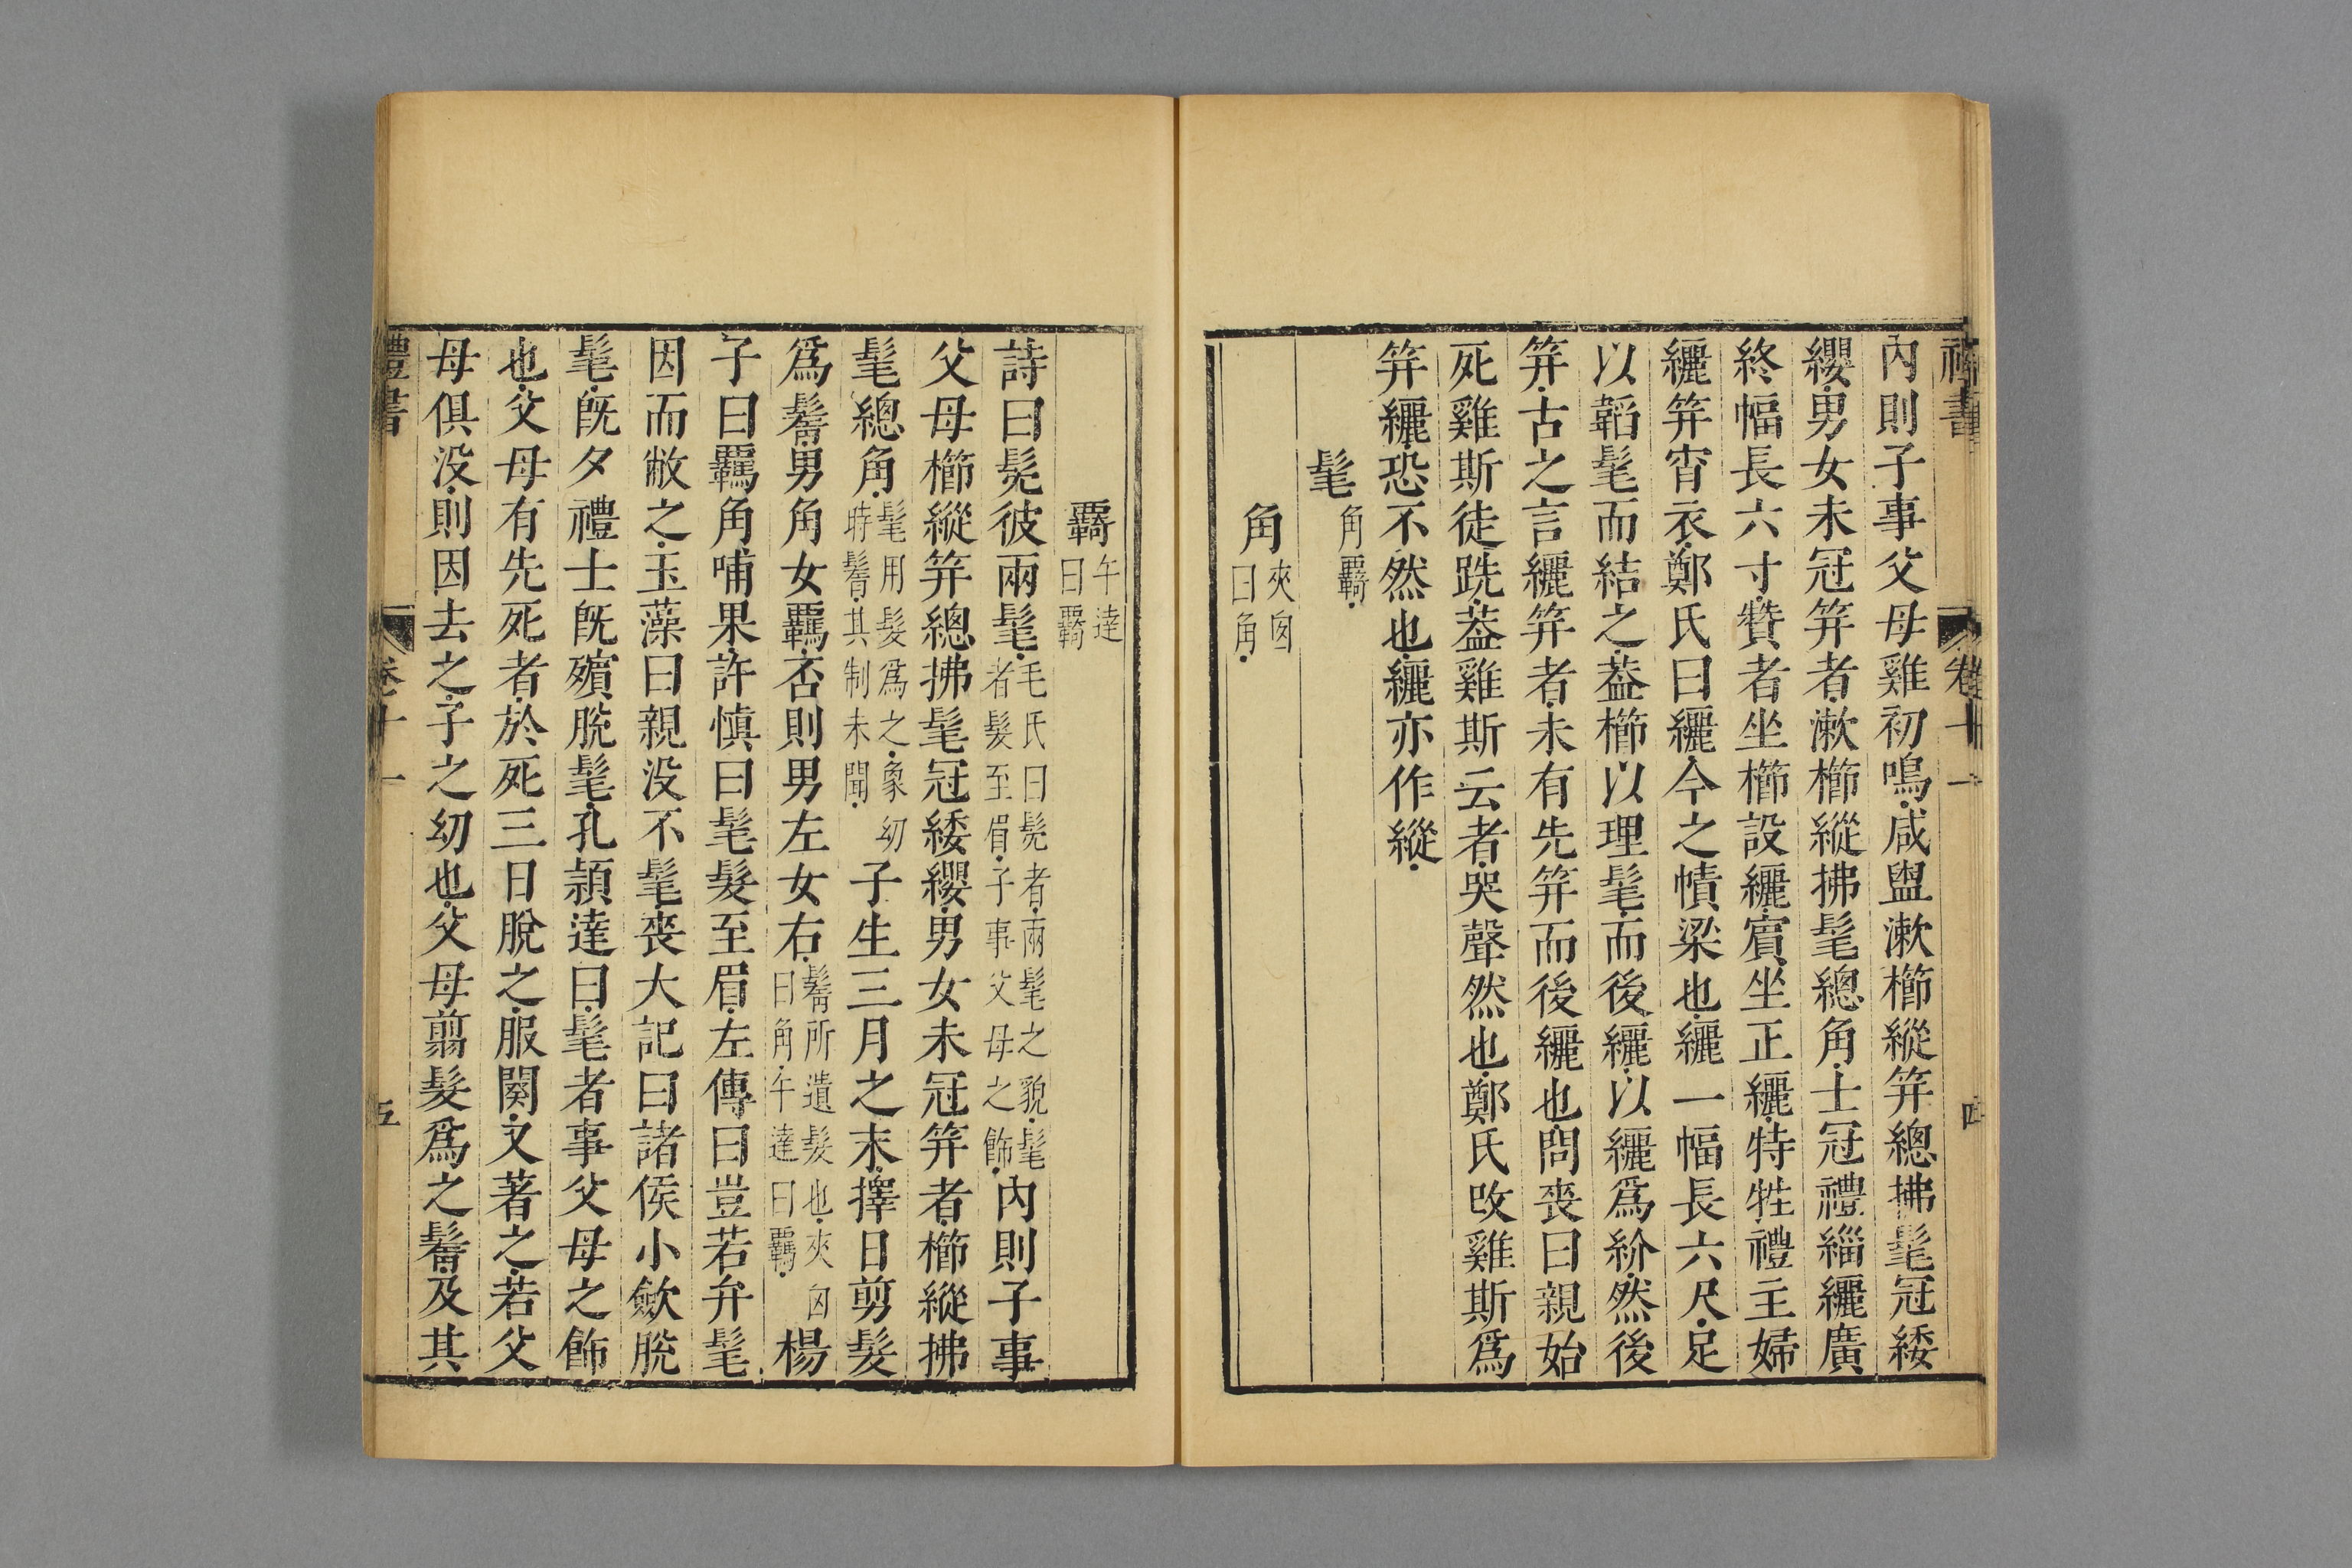 禮書 卷十一 四
內則子事父母雞初鳴咸盥漱櫛縰笄總拂髦冠緌
纓男女未冠笄者漱櫛縰拂髦總角士冠禮緇纚廣
終幅長六寸贊者坐櫛設纚賓坐正纚特牲禮主婦
纚笄宵衣鄭氏曰纚今之幘梁也纚一幅長六尺足
以韜髦而結之葢櫛以理髦而後纚以纚為紒然後
笄古之言纚笄者未有先笄而後纚也問喪曰親始
死雞斯徒跣葢雞斯云者哭聲然也鄭氏改雞斯為
笄纚恐不然也纚亦作縰
髦 角羈
角 夾囟曰角
羈 午達曰羈
詩曰髧彼兩髦 毛氏曰髧者兩髦之貌髦者髮至眉子事父母之飾 內則子事
父母櫛縰笄總拂髦冠緌纓男女未冠笄者櫛縰拂
髦總角 髦用髮為之象幼時鬌其制未聞 子生三月之末擇日剪髮
爲鬌男角女羈否則男左女右 鬌所遺髮也夾囟曰角午達曰羈 楊
子曰羈角哺果許慎曰髦髮至眉左傳曰豈若弁髦
因而敝之玉藻曰親没不髦喪大記曰諸侯小歛脫
髦旣夕禮士旣殯脫髦孔穎達曰髦者事父母之飾
也父母有先死者於死三日脫之服闋又著之若父
母俱没則因去之子之幼也父母翦髮爲之鬌及其
禮書 卷十一 五